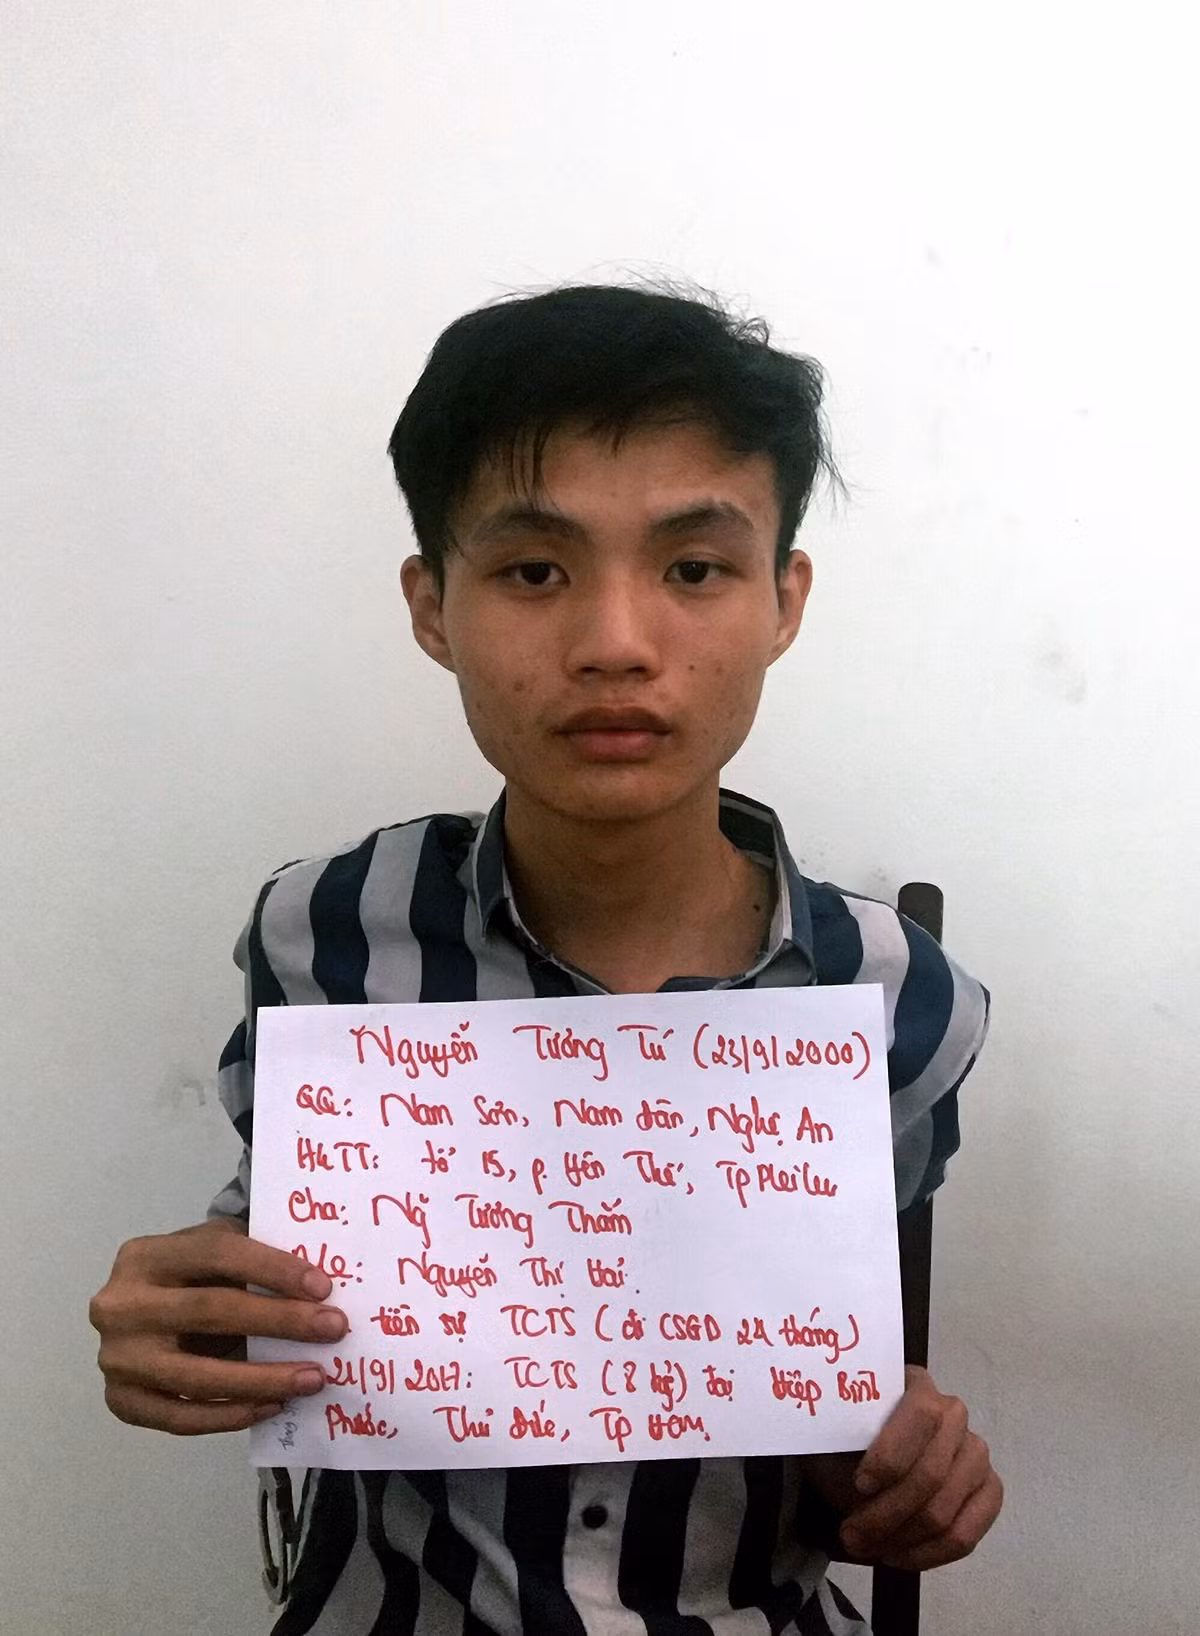 Nguyễn Tương Tú (23/9/2000)
QQ: Nam Sơn, Nam Đàn, Nghệ An
HKTT: tổ 15, p. Yên Thế, Tp Pleiku
Cha: Ng Tương Thắm
Mẹ: Nguyễn Thị Hải.
tiền sự TCTS (đi CSGD 24 tháng)
21/9/2017: TCTS (8 kg) tại Hiệp Bình
Phước, Thủ Đức, Tp HCM.